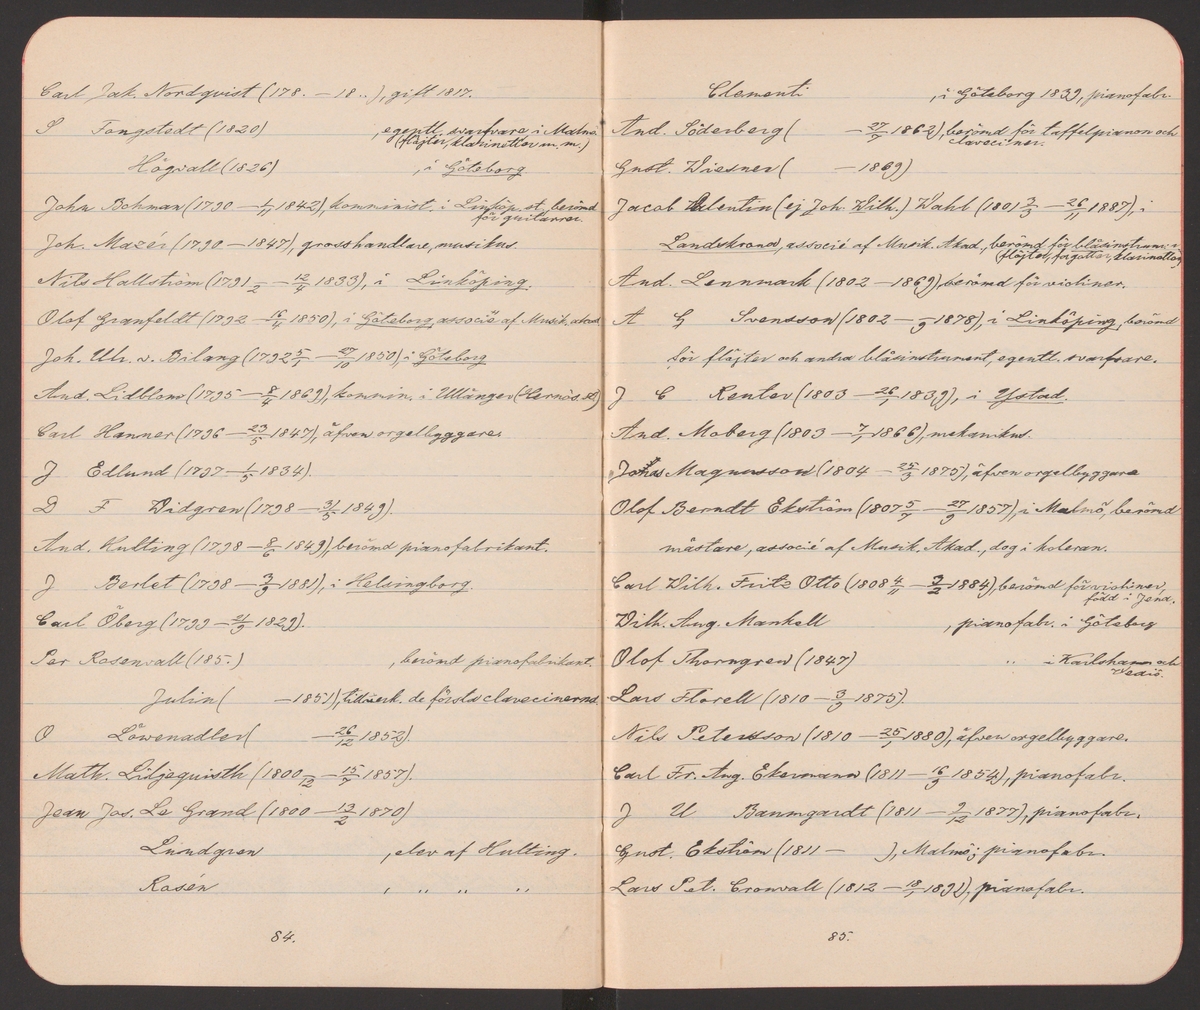 Carl Jak. Nordqvist (178. – 18..), gift 1817.
S Fongstedt (1820) , egentl. svarfvare i Malmö.
(flöjter, klarinetter m. m.)
Högvall (1826) , i Göteborg
John Bohman (1790 – 1/11 1842), komminist. i Linköp. st., berömd
för guitarrer.
Joh. Mazér (1790 – 1847), grosshandlare, musikus.
Nils Hallström (1791 /2 – 12/4 1833), i Linköping.
Olof Granfeldt (1792 – 16/4 1850), i Göteborg associé af Musik. akad.
Joh. Ulr. v. Bilang (1792 5/5 – 27/10 1850), i Göteborg
And. Lidblom (1795 – 8/4 1869), kommin. i Ullånger (Hernös. st)
Carl Hanner (1796 – 23/5 1847), äfven orgelbyggare.
J Edlund (1797 – 1/5 1834)
D F Widgren (1798 – 31/5 1849).
And. Hulting (1798 – 8/6 1849), berömd pianofabrikant.
J Berlet (1798 – 3/3 1881), i Helsingborg.
Carl Öberg (1799 – 21/9 1829).
Per Rosenvall (185.) , berömd pianofabrikant.
Julin ( – 1851), tillverk. de första clavecinerna.
O Löwenadler ( – 26/12 1852).
Math. Liljequisth (1800 /12 – 15/7 1857).
Jean Jos. Le Grand (1800 – 13/2 1870)
Lundgren , elev af Hulting.
Rosén , „ „ „
84.
Clementi , i Göteborg 1839, pianofabr.
And. Söderberg ( – 27/7 1862), berömd för taffelpianon och
claveciner.
Gust. Wiesner ( – 1869)
Jacob Valentin (ej Joh. Wilh.) Wahl (1801 2/3 – 26/11 1887), i
Landskrona, associé af Musik. Akad., berömd för blåsinstrum:r
(flöjter, fagotter, klarinetter)
And. Lennmark (1802 – 1869), berömd för violiner.
A G Svensson (1802 – /9 1878), i Linköping, berömd
för flöjter och andra blåsinstrument, egentl. svarfvare.
J C Renter (1803 – 26/1 1839), i Ystad.
And. Moberg (1803 – 7/1 1866), mekanikus.
Jonas Magnusson (1804 – 25/3 1875), äfven orgelbyggare
Olof Berndt Ekström (1807 5/7 – 27/9 1857), i Malmö, berömd
mästare, associé af Musik. Akad., dog i koleran.
Carl Wilh. Fritz Otto (1808 4/11 – 3/2 1884), berömd för violiner,
född i Jena.
Wilh. Aug. Mankell , pianofabr. i Göteborg
Olof Thorngren (1847) „ i Karlshamn och
Wexiö.
Lars Florell (1810 – 3/3 1875).
Nils Petersson (1810 – 25/1 1880), äfven orgelbyggare.
Carl Fr. Aug. Ekermann (1811 – 16/3 1854), pianofabr.
J U Baumgardt (1811 – 9/12 1877), pianofabr.
Gust. Ekström (1811 – ), Malmö; pianofabr.
Lars Pet. Cronvall (1812 – 18/1 1892), pianofabr.
85.